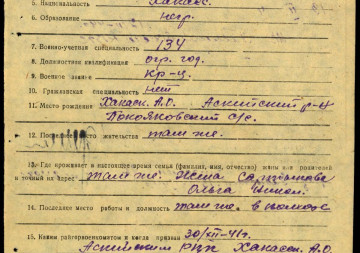 5. Национальность Хакасс.
6. Образование негр.
7. Военно-учетная специальность 134
8. Должностная квалификация огр. год.
9. Военное звание Кр-ц.
10. Гражданская специальность нет
11. Место рождения Хакасс. А.О. Аскизский р-н
с/с.
12. жительства там же.
13. Где проживает в настоящее время семья (фамилия, имя, отчество) жены или родителей
и точный их адрес там же. Жена
Ольга
14. Последнее место работы и должность там же. в колхозе
15. Каким райгорвоенкоматом и когда призван 30/XII-41г.
Аскизским РВК Хакасск. А.О.